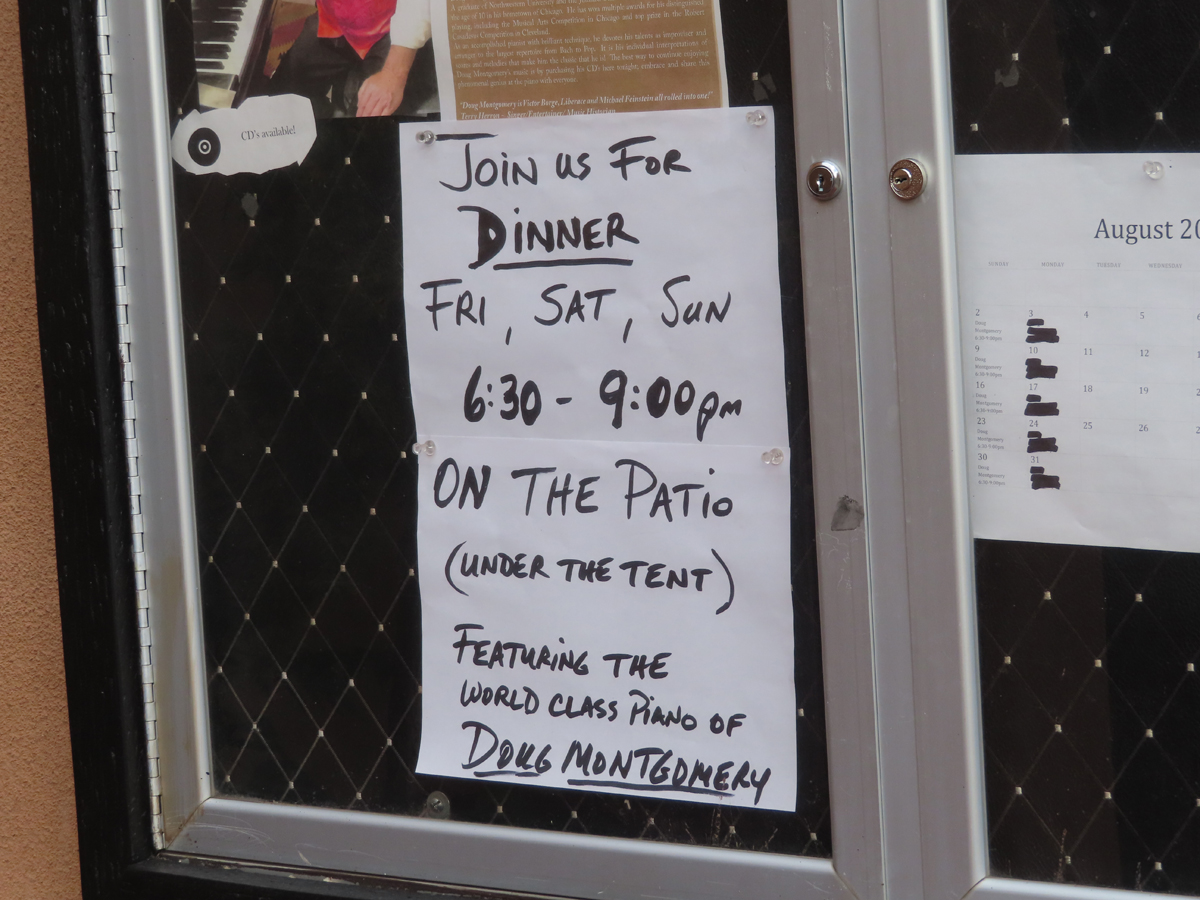 A graduate of Northwestern University and the
the age of 10 in his hometown of Chicago. He has won multiple awards for his distinguished
playing, including the Musical Arts Competition in Chicago and top prize in the Robert
Casadesus Competition in Cleveland.
As an accomplished pianist with brilliant technique, he devotes his talents as
arranger to the largest repertoire from Bach to Pop. It is his individual interpretations of
and melodies that make him the classic that he is! The best way to continue enjoying
Doug Montgomery's music is by purchasing his CD's here tonight; embrace and share this
phenomenal at the piano with everyone.
"Doug Montgomery is Victor Borge, Liberace and Michael Feinstein all rolled into one!"
CD's available!
JOIN US FOR
DINNER
FRI, SAT, SUN
6:30 - 9:00pm
ON THE PATIO
(UNDER THE TENT)
FEATURING THE
WORLD CLASS PIANO OF
DOUG MONTGOMERY
August 20
SUNDAY MONDAY TUESDAY WEDNESDAY
2 3 4 5 6
Doug
Montgomery
6:30-9:00pm
9 10 11 12
Doug
Montgomery
6:30-9:00pm
16 17 18 19 2
Doug
Montgomery
6:30-9:00pm
23 24 25 26 2
Doug
Montgomery
6:30-9:00pm
30 31
Doug
Montgomery
6:30-9:00pm